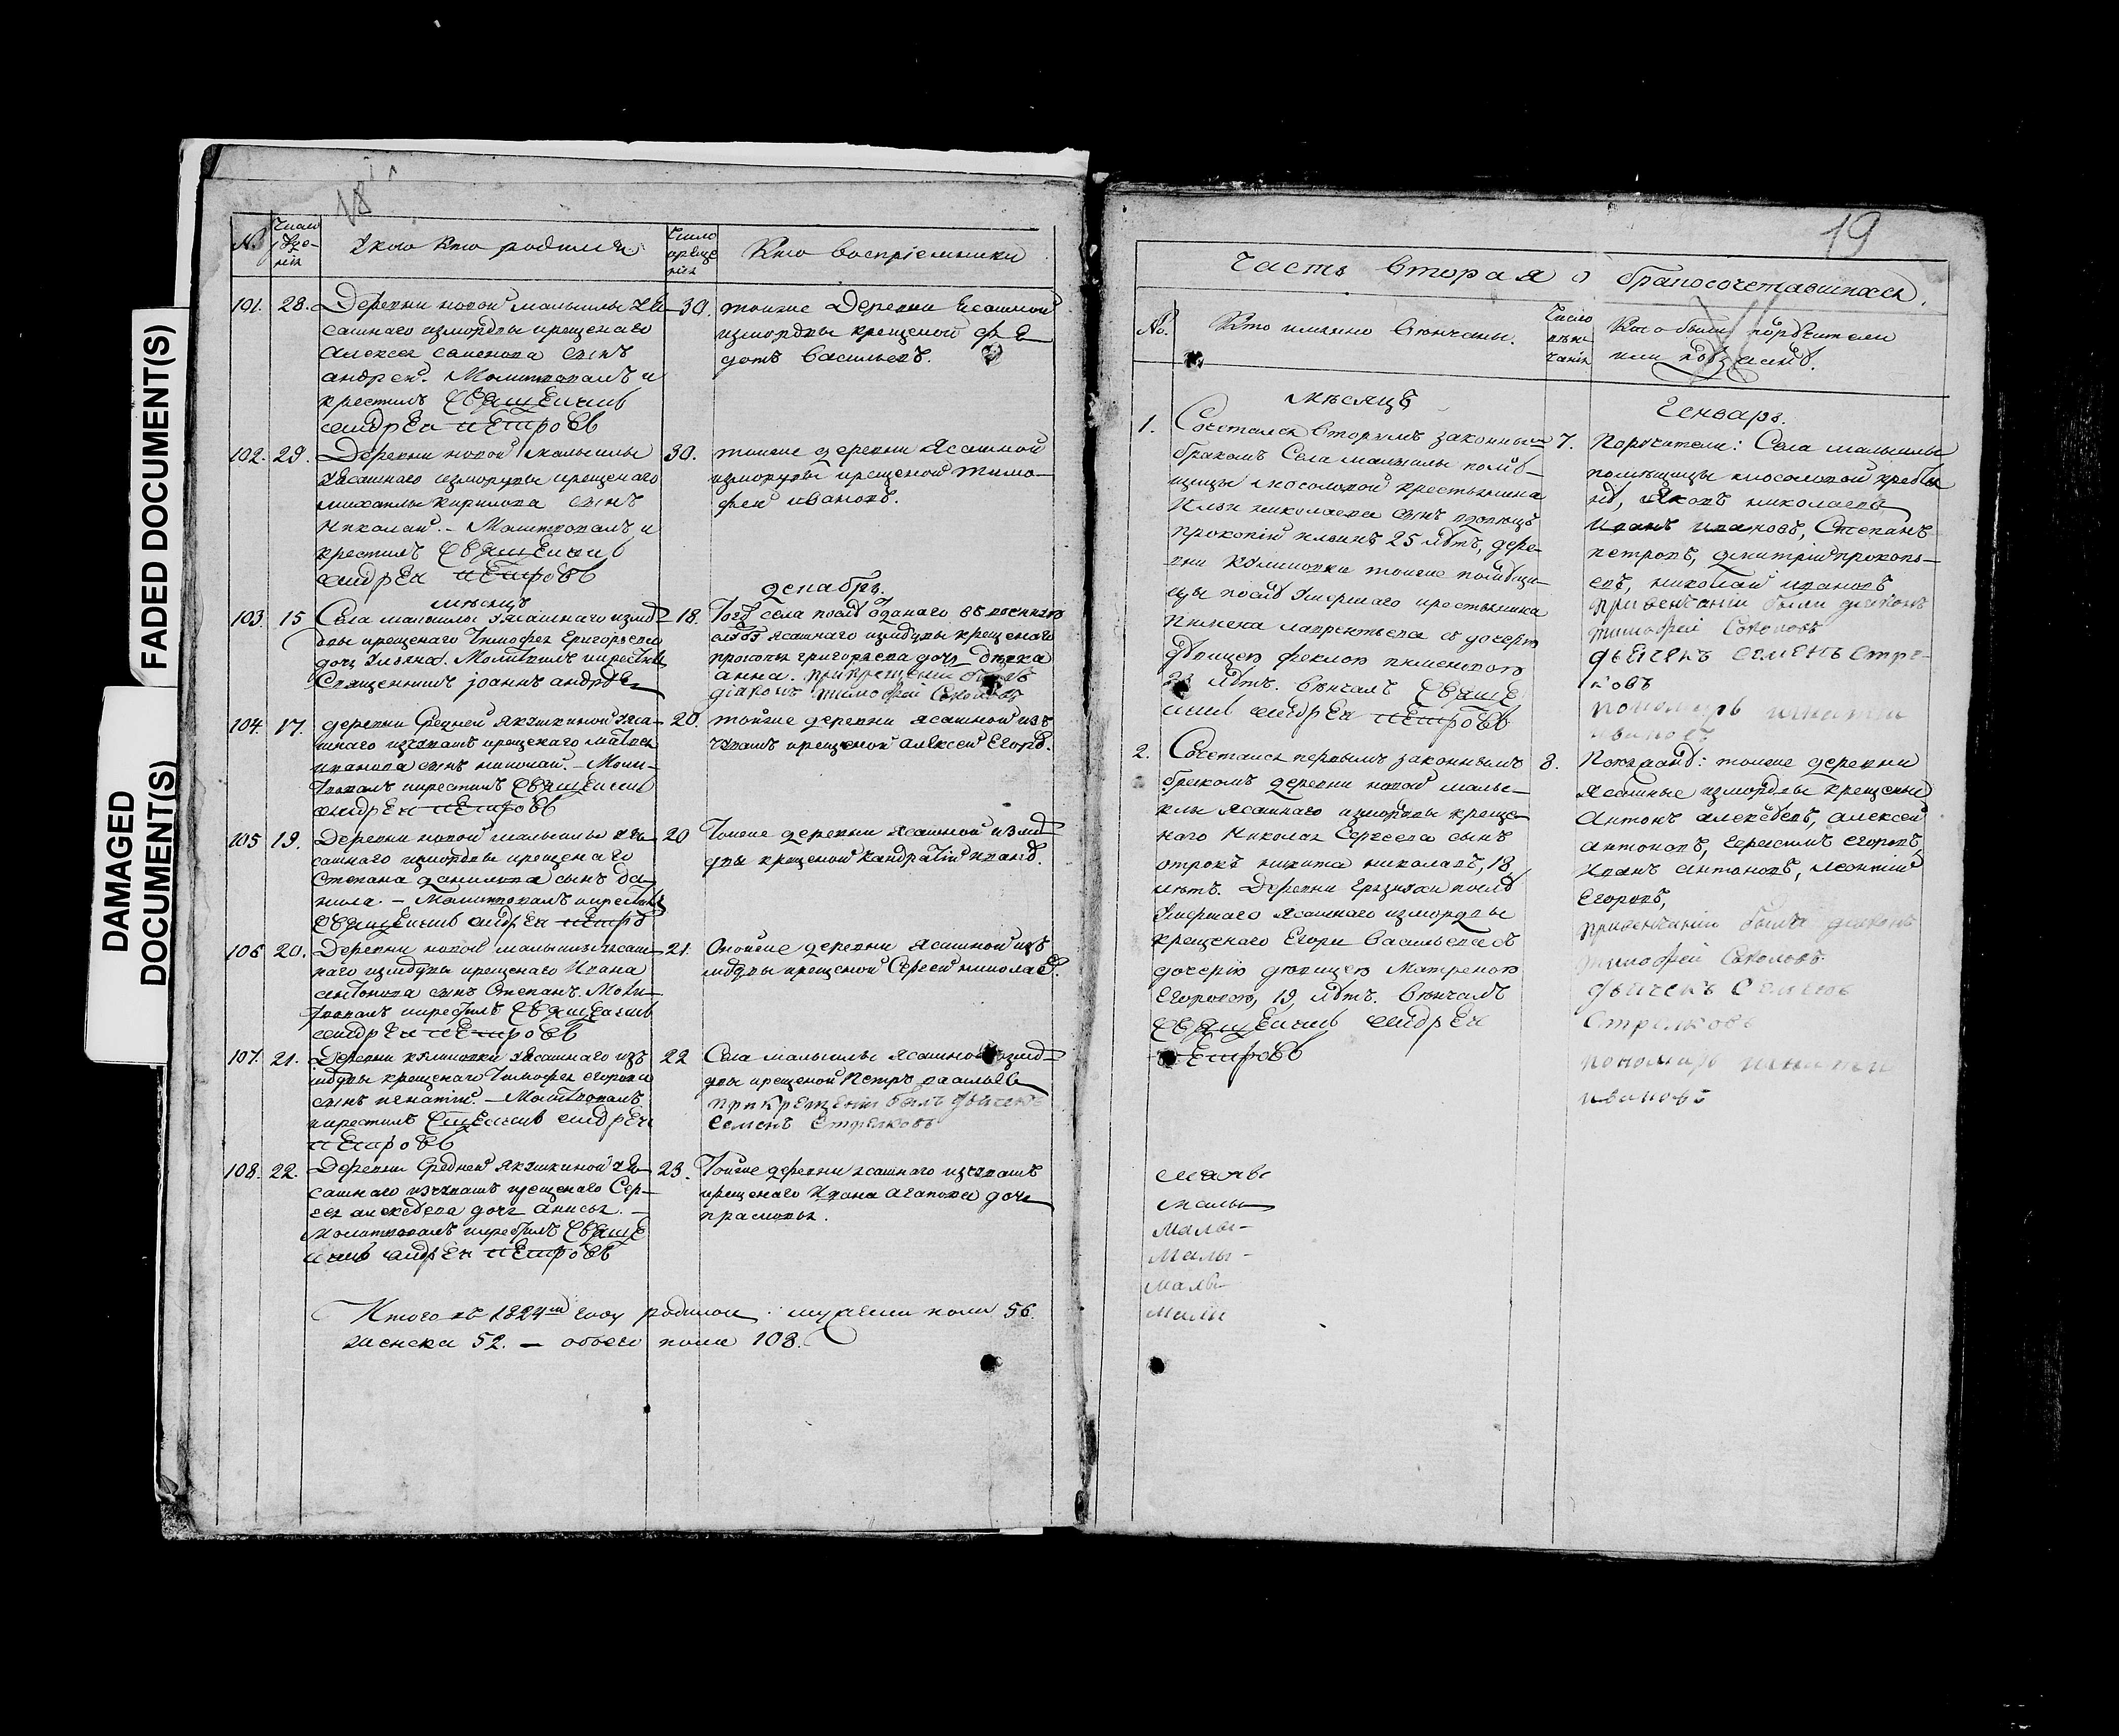 FADED DOCUMENT(S)
DAMAGED
DOCUMENT(S)
18
№
Число
рожде-
нія
У кого кто родился
Число
креще
нія
Кто воспріемники
101. 28.
Деревни новой малыклы Яса-
сашнаго измордвы крещенаго
Алексея семенова сынъ
андрей. Молитвовалъ и
крестилъ священникъ
андрей петровъ
30.
тойже деревни Ясашной
измордвы крещеной фе
дотъ васильевъ.
102. 29.
Деревни новой малыклы
Уясашнаго измордвы крещенаго
михаилы кирилова сынъ
Николай. - Молитвовалъ и
крестилъ священникъ
андрей петровъ
30.
тойже деревни Ясашной
измордвы крещеной тимо-
фей ивановъ.
мѣсяцъ
декабрь.
103. 15
Села малыклы Уясашнаго измор-
двы крещенаго Тимофея Григорьева
дочь Ульяна. Молитвовалъ икрестилъ
Священникъ іоаннъ андрѣев
18.
Того села послѣ отданаго въ военную
службу ясашнаго измордвы крещенаго
прокопья григорьева дочь девка
анна. при крещеніи былъ
діаконъ тимофей Соколовъ
104. 17.
деревни Средней Якушкиной Уяса-
шнаго изчувашъ крещенаго Матвея
иванова сынъ николай. - Моли-
твовалъ икрестилъ священникъ
андрей петровъ
20.
тойже деревни ясашной изъ
чувашъ крещеной алексей Егоровъ.
105 19.
Деревни новой малыклы Уяса-
сашнаго измордвы крещенаго
Степана данилова сынъ да-
нила. - Молитвовалъ икрестилъ
священникъ андрей петровъ
20
Тойже деревни ясашной измор-
двы крещеной кандратій ивановъ.
106 20.
Деревни новой малыклы Уясаш-
наго измордвы крещенаго Ивана
антонова сынъ Степанъ. Моли-
твовалъ икрестилъ священникъ
андрей петровъ
21.
Тойже деревни ясашной изъ
мордвы крещеной Сергей николаевъ.
107. 21.
Деревни куликовки Уясашнаго изъ
мордвы крещенаго Тимофея егорова
сынъ игнатій. - Молитвовалъ
икрестилъ священникъ андрей
петровъ
22
Села малыклы ясашной измор-
двы крещеной Петръ васильев
при крещеніи былъ дьячекъ
Семенъ Стрелковъ
108. 22.
Деревни Средней Якушкиной Уя-
сашнаго изчувашъ крещенаго Сер-
гея алексѣева дочь анисья. -
Молитвовалъ икрестилъ священ
никъ андрей петровъ
23.
Тойже деревни ясашнаго изчувашъ
крещенаго Ивана агапова дочь
прасковья.
Итого въ 1824мъ году родилось: мужеска пола 56.
женска 52. - обоего пола 108.
19
Часть вторая о бракосочетавшихся.
№
Кто именно вѣнчаны.
Число
вѣн-
чанія
Кто были поручители
или поѣзжане.
мѣсяцъ
Генварь.
1.
Сочетался вторымъ законнымъ
бракомъ Села малыклы помѣ-
щицы крестьянина
Ильи николаева сынъ вдовецъ
прокопій ильинъ 25 лѣтъ, дере-
вни куликовки тойже помѣщи-
цы послѣ умершаго крестьянина
пимена лаврентьева съ дочерью
дѣвицею феклою пименовою
лѣтъ. вѣнчалъ священ
никъ андрей петровъ
7.
поручители: Села малыклы
помѣщицы
Яковъ николаевъ,
иванъ ивановъ, Степанъ
петровъ, димитрій прокопь-
евъ, николай ивановъ
при венчаніи были діаконъ
тимофей Соколовъ
дьячекъ Семенъ Стрел-
ковъ
пономарь игнатій
ивановъ
2.
Сочетался первымъ законнымъ
бракомъ деревни новой малы-
клы ясашнаго измордвы креще-
наго Николая Сергеева сынъ
отрокъ никита николаевъ, 18
лѣтъ. Деревни послѣ
умершаго ясашнаго измордвы
крещенаго Егора васильева съ
дочерью дѣвицею Матреною
Егоровою, 19, лѣтъ. вѣнчалъ
священникъ андрей
петровъ
8.
Поезжане: тойже деревни
ясашные измордвы крещеные
Антонъ алексѣевъ, алексей
антоновъ, герасимъ егоровъ,
Иванъ антоновъ, леонтий
Егоровъ,
при венчаніи были діаконъ
тимофей Соколовъ
дьячекъ Семенъ
Стрелковъ
пономарь игнатій
ивановъ
малы
малы
малы-
малы-
малы-
малы